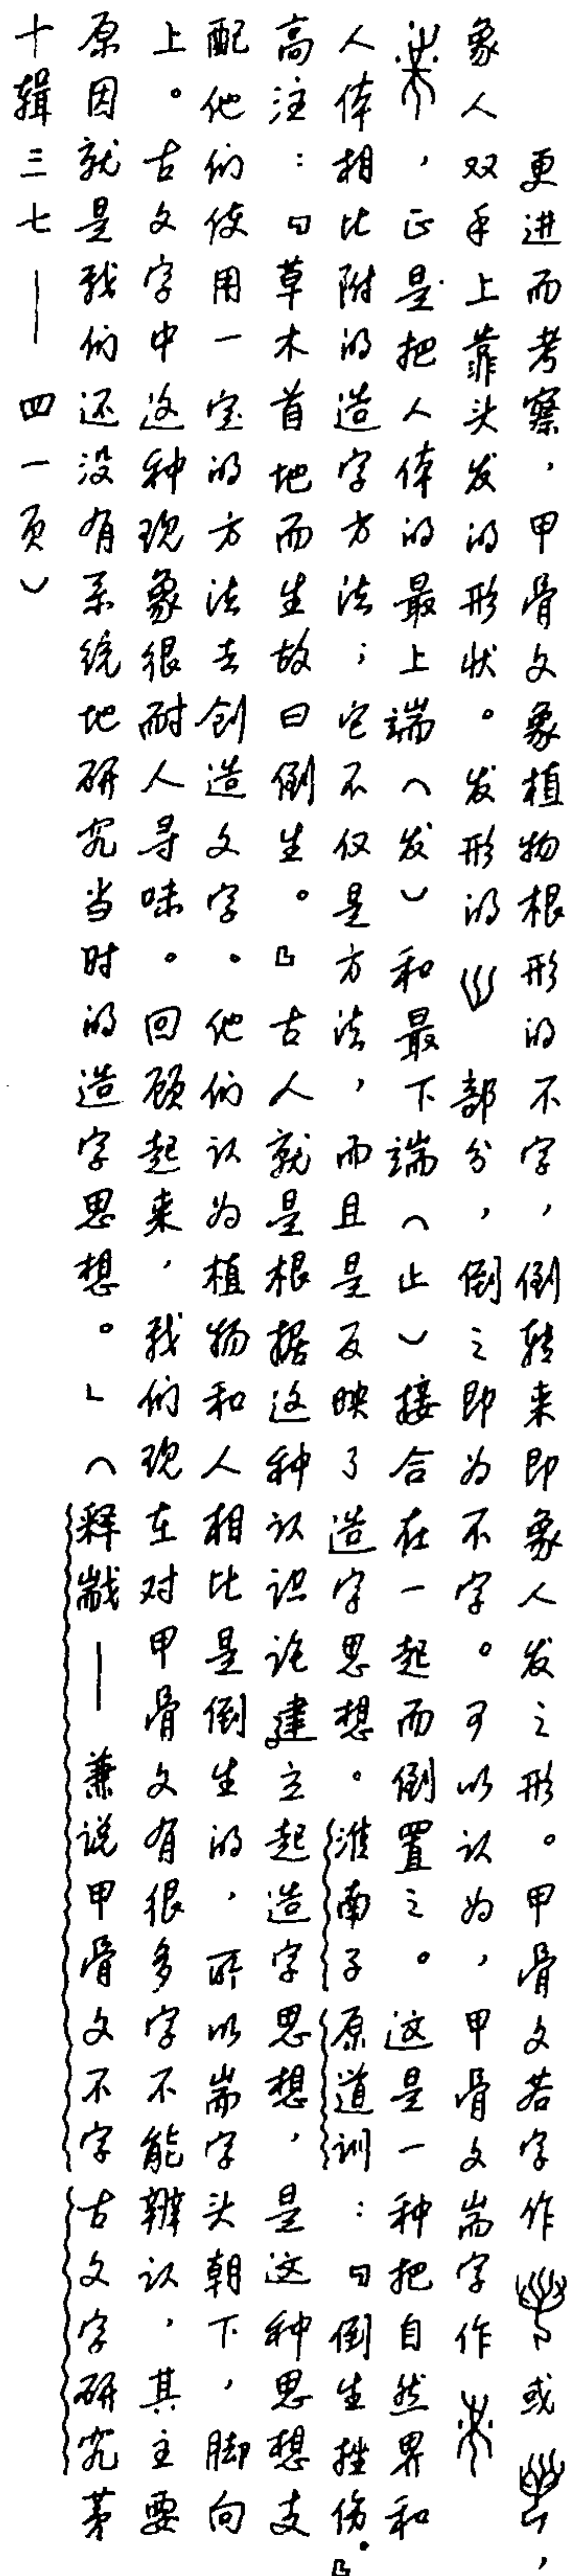 更进而考察，甲骨文象植物根形的不字，倒转来即象人发之形。甲骨文若字作或，
象人双手上靠头发的形状。发形的部分，倒之即为不字。可以认为，甲骨文耑字作
，正是把人体的最上端（发）和最下端（止）接合在一起而倒置之。这是一种把自然界和
人体相比附的造字方法；它不仅是方法，而且是反映了造字思想。淮南子原道训：『倒生挫伤。』
高注：『草木首地而生故曰倒生。』古人就是根据这种认识论建立起造字思想，是这种思想支
配他们使用一定的方法去创造文字。他们认为植物和人相比是倒生的，所以耑字头朝下，脚向
上。古文字中这种现象很耐人寻味。回顾起来，我们现在对甲骨文有很多字不能辨认，其主要
原因就是我们还没有系统地研究当时的造字思想。」（释𢧤——兼说甲骨文不字古文字研究第
十辑三七——四一页）